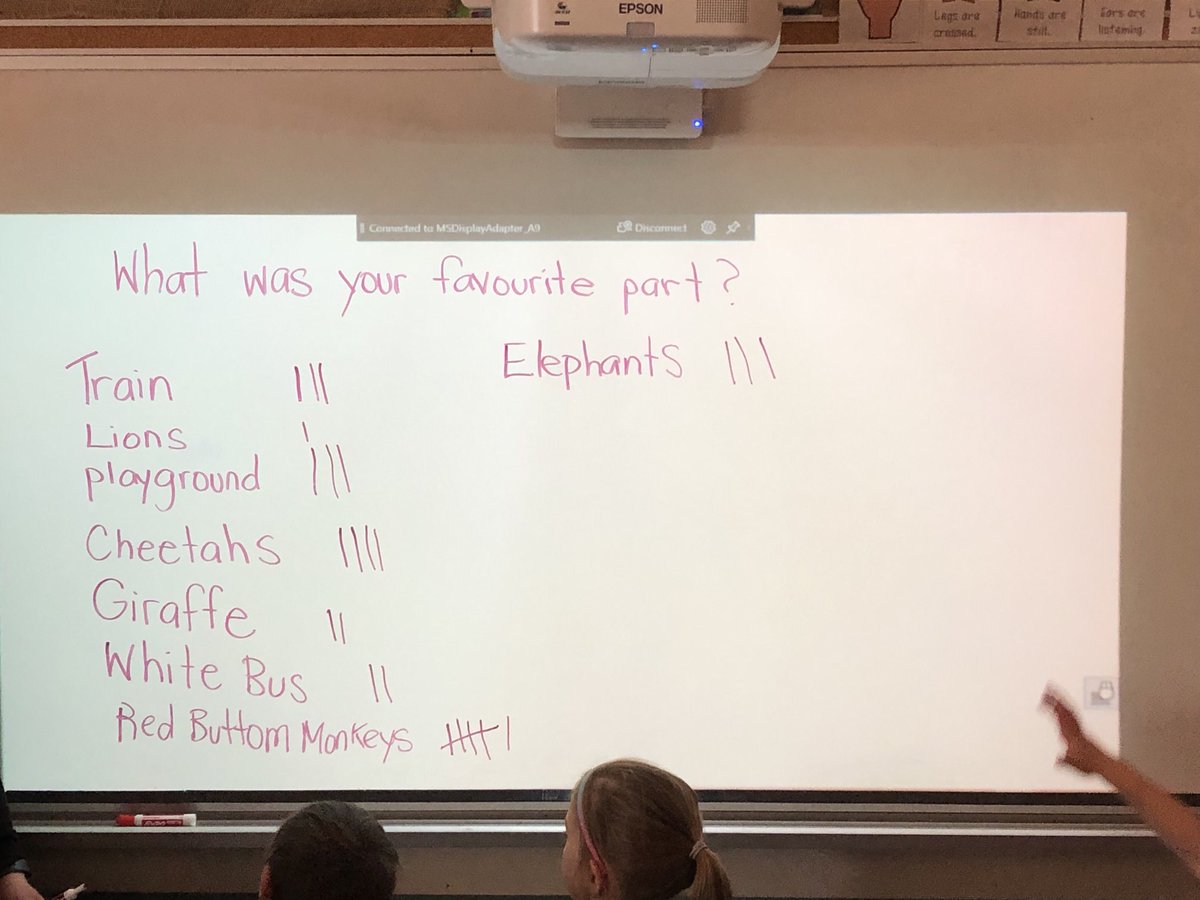 EPSON
Legs are
crossed.
Hands are
still.
Ears are
listening.
Connected to MSDisplayAdapter_A9 Disconnect
What was your favourite part?
Train |||
Lions |
playground |||
Cheetahs ||||
Giraffe ||
White Bus ||
Red Buttom Monkeys |||| |
Elephants |||